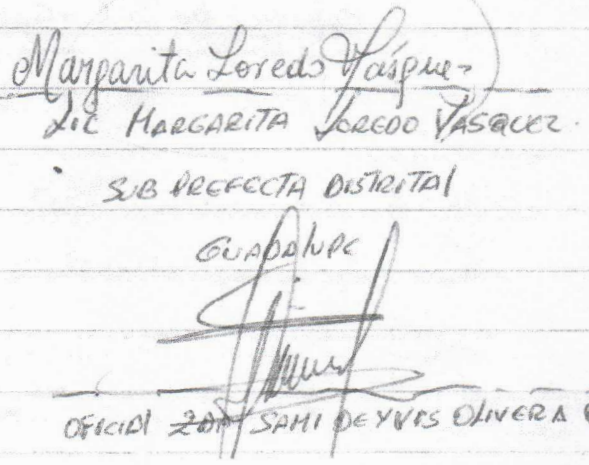 Margarita Loredo Vásquez
LIC MARGARITA LOREDO VASQUEZ.
SUB PREFECTA DISTRITAL
GUADALUPE
OFICIAL SAMI DEYVIS OLIVERA